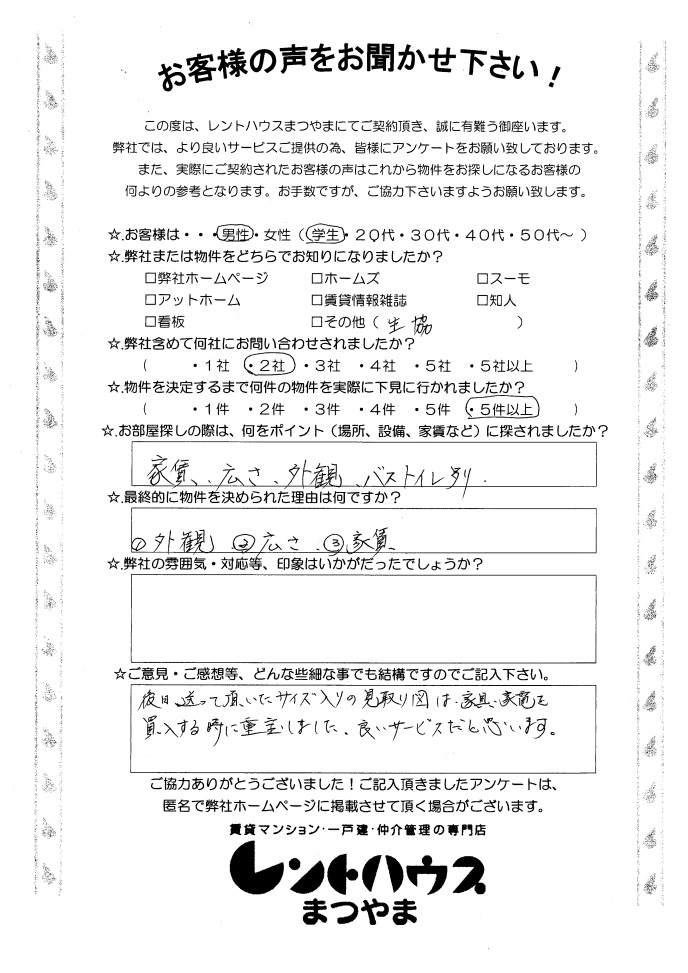 お客様の声をお聞かせ下さい!
この度は、レントハウスまつやまにてご契約頂き、誠に有難う御座います。
弊社では、より良いサービスご提供の為、皆様にアンケートをお願い致しております。
また、実際にご契約されたお客様の声はこれから物件をお探しになるお客様の
何よりの参考となります。お手数ですが、ご協力下さいますようお願い致します。
☆.お客様は・・・男性・女性(学生・20代・30代・40代・50代〜)
☆.弊社または物件をどちらでお知りになりましたか?
□弊社ホームページ □ホームズ □スーモ
□アットホーム □賃貸情報雑誌 □知人
□看板 □その他(生協)
☆.弊社含めて何社にお問い合わせされましたか?
( ・1社 ・2社 ・3社 ・4社 ・5社 ・5社以上 )
☆.物件を決定するまで何件の物件を実際に下見に行かれましたか?
( ・1件 ・2件 ・3件 ・4件 ・5件 ・5件以上 )
☆.お部屋探しの際は、何をポイント(場所、設備、家賃など)に探されましたか?
家賃、広さ、外観、バストイレ別.
☆.最終的に物件を決められた理由は何ですか?
①外観 ②広さ、③家賃、
☆.弊社の雰囲気・対応等、印象はいかがだったでしょうか?
☆ご意見・ご感想等、どんな些細な事でも結構ですのでご記入下さい。
後日、送って頂いたサイズ入りの見取り図は、家具、家電を
買入する時に重宝しました、良いサービスだと思います。
ご協力ありがとうございました!ご記入頂きましたアンケートは、
匿名で弊社ホームページに掲載させて頂く場合がございます。
賃貸マンション・一戸建・仲介管理の専門店
レントハウス
まつやま